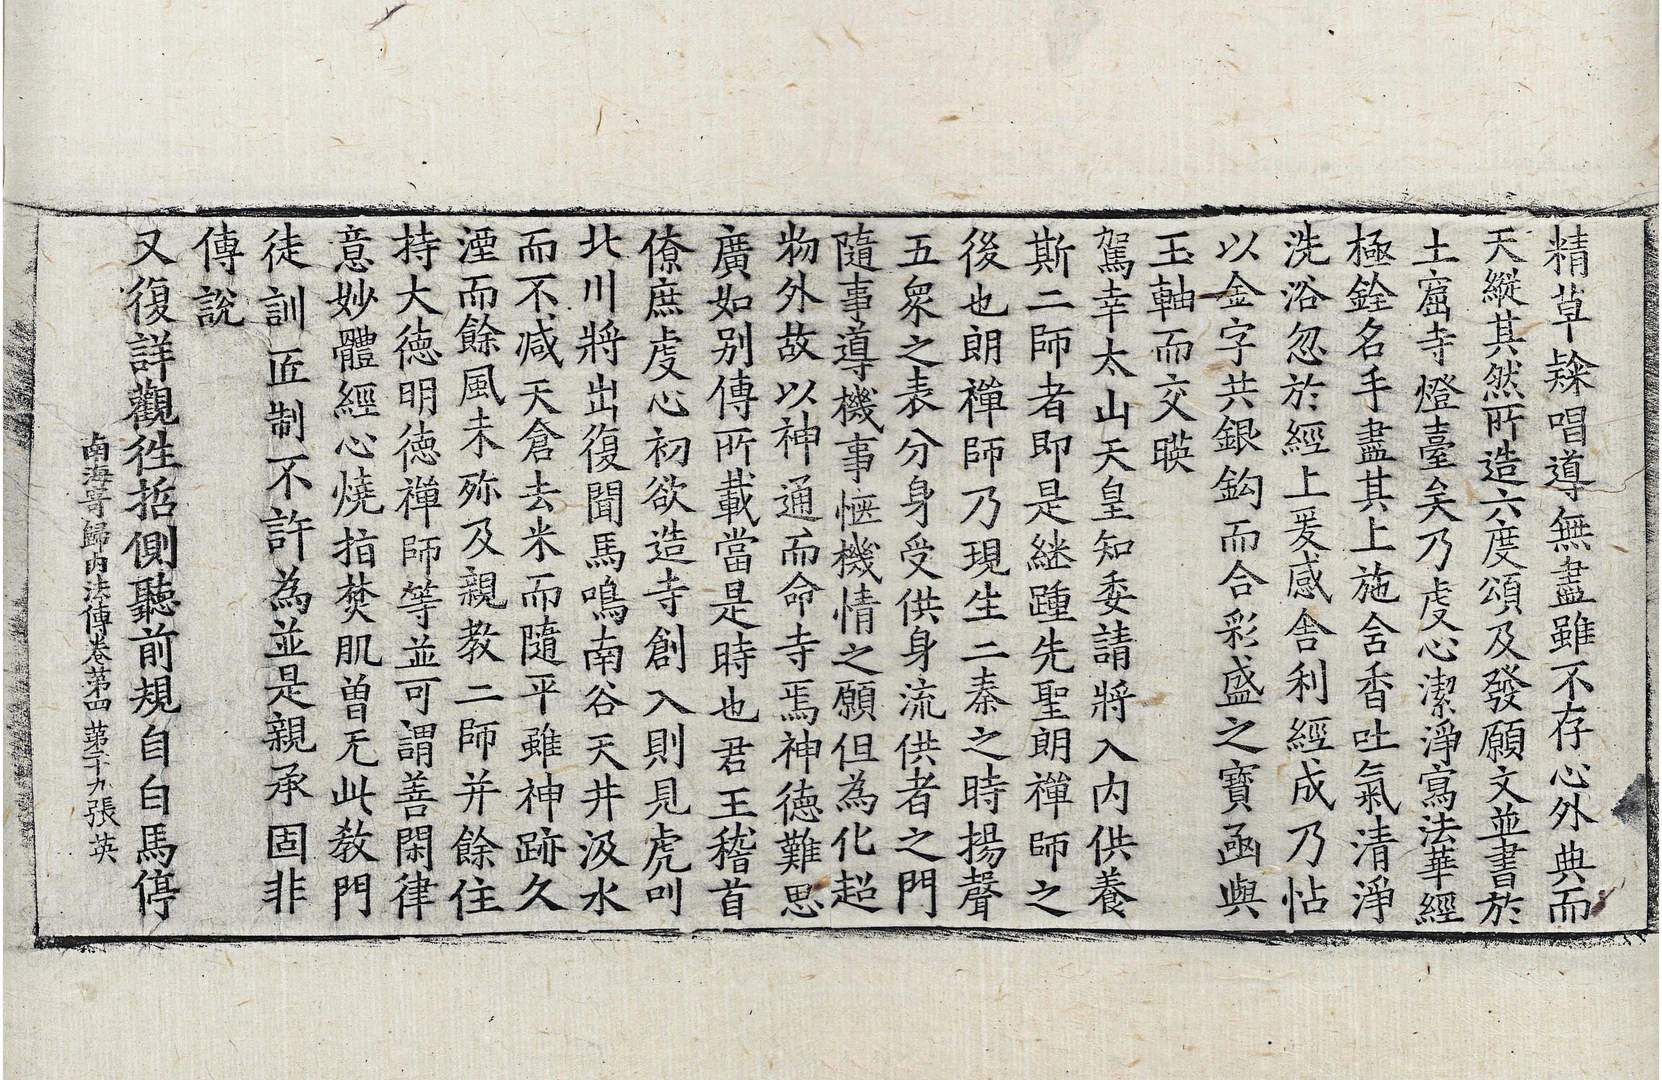 精草𨽻唱導無盡雖不存心外典而
天縱其然所造六度頌及發願文並書於
土窟寺燈臺矣乃虔心潔淨寫法華經
極銓名手盡其上施含香吐氣清淨
洗浴忽於經上爰感舍利經成乃帖
以金字共銀鈎而合彩盛之寶函與
玉軸而交暎
駕幸太山天皇知委請將入內供養
斯二師者即是継踵先聖朗禪師之
後也朗禪師乃現生二秦之時揚聲
五衆之表分身受供身流供者之門
隨事導機事愜機情之願但為化超
物外故以神通而命寺焉神德難思
廣如別傳所載當是時也君王稽首
僚庶虔心初欲造寺創入則見虎叫
北川將出復聞馬鳴南谷天井汲水
而不減天倉去米而隨平雖神跡久
湮而餘風未殄及親教二師并餘住
持大德明德禪師等並可謂善閑律
意妙體經心燒指焚肌曾无此教門
徒訓匠制不許為並是親承固非
傳說
又復詳觀徃哲側聽前規自白馬停
南海寄歸內法傳卷第四 第二十九張 英